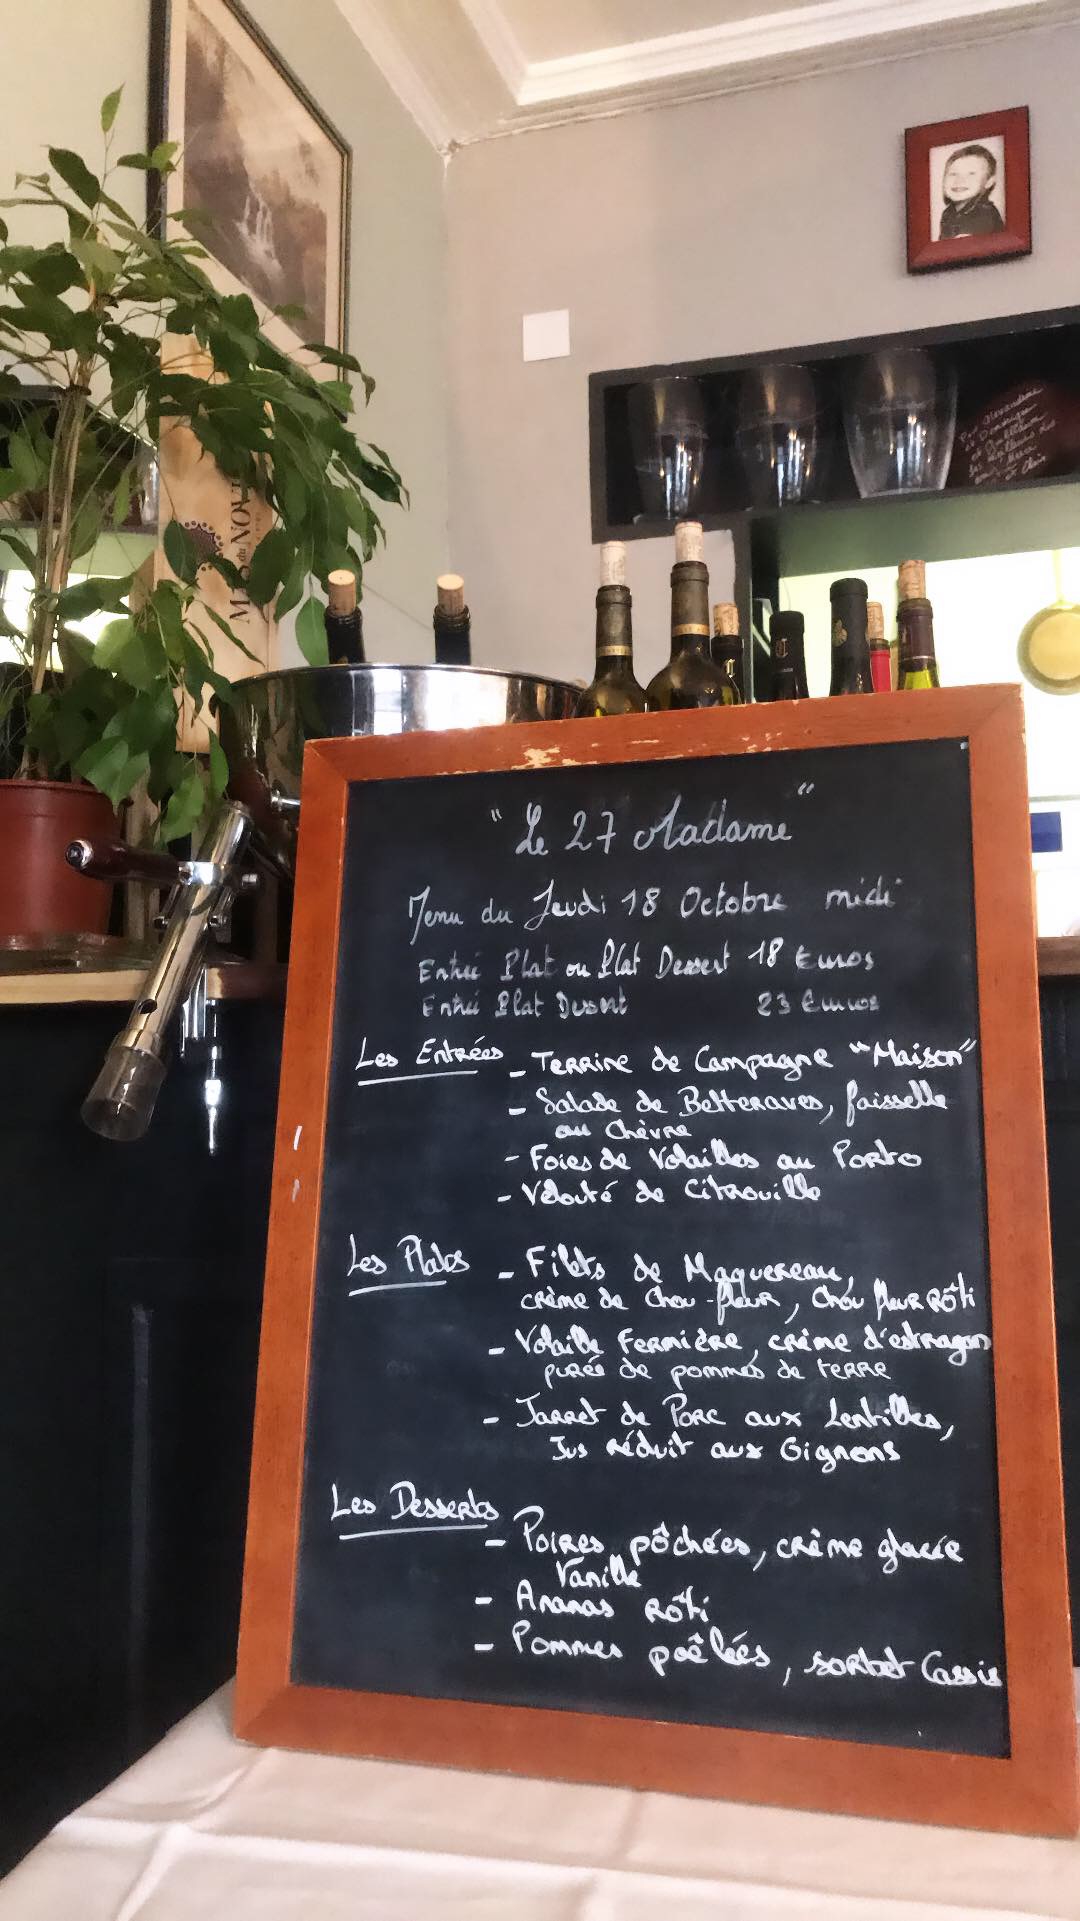 "Le 27 Madame"
Menu du Jeudi 18 Octobre midi
Entrée Plat ou Plat Dessert 18 Euros
Entrée Plat Dessert 23 Euros
Les Entrées - Terrine de Campagne "Maison"
- Salade de Betteraves, faisselle
au Chèvre
- Foies de Volailles au Porto
- Velouté de Citrouille
Les Plats - Filets de Maquereau,
crème de Chou-fleur, Chou fleur Rôti
- Volaille Fermière, crème d'estragon
purée de pommes de terre
- Jarret de Porc aux Lentilles,
Jus réduit aux Oignons
Les Desserts
- Poires pôchées, crème glacée
Vanille
- Ananas rôti
- Pommes poêlées, sorbet Cassis